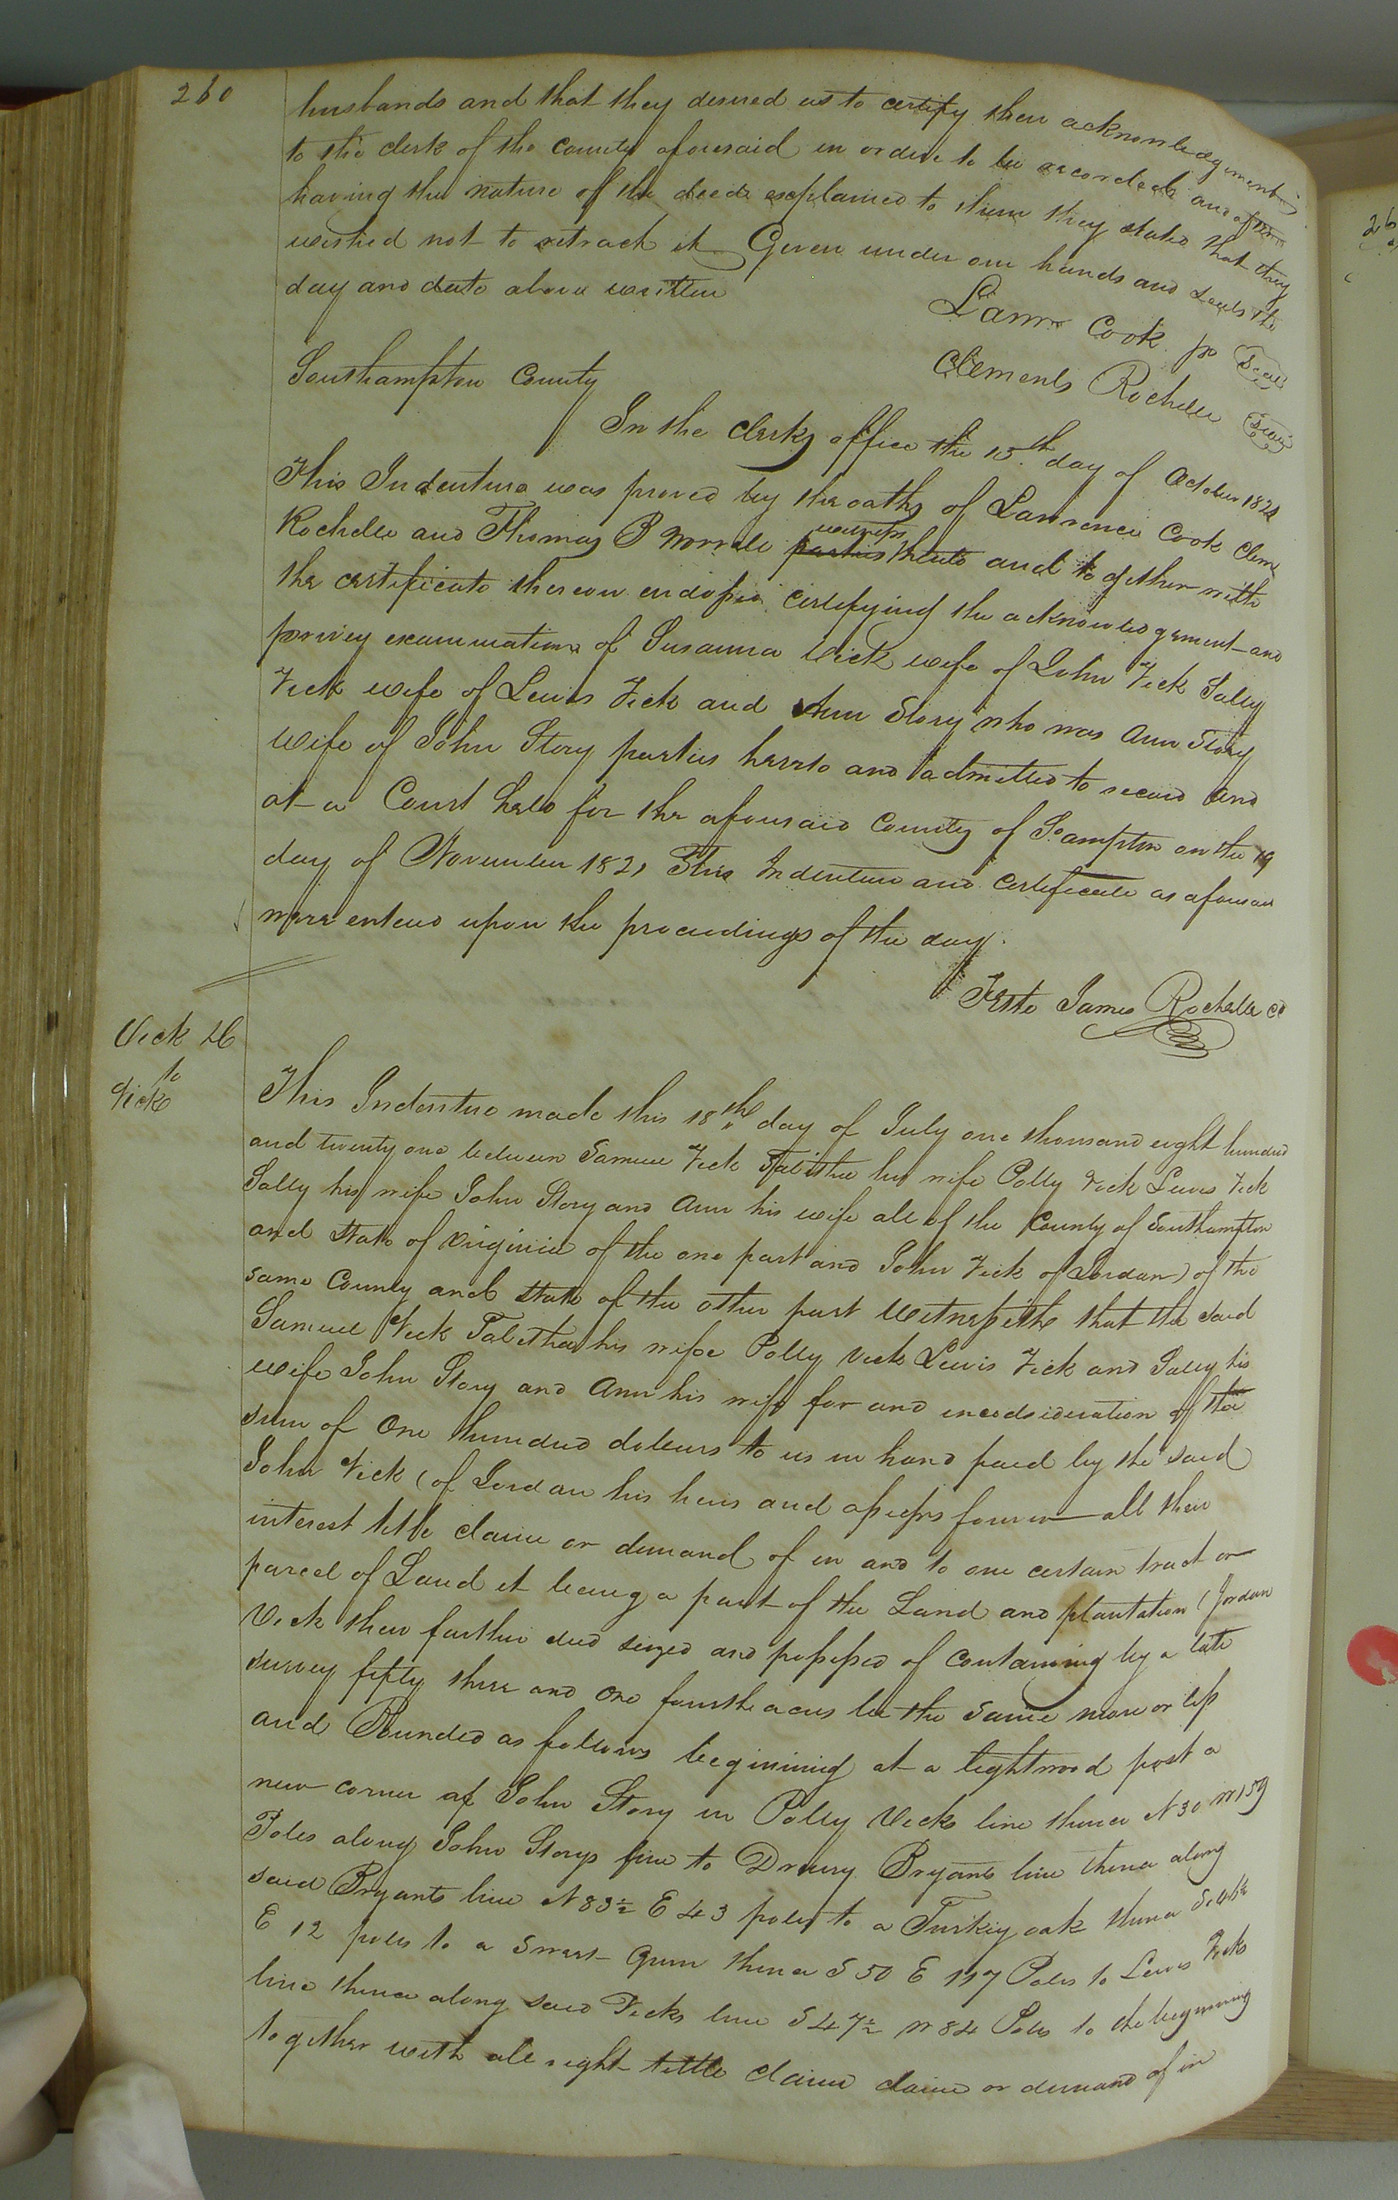 260
husbands and that they desired us to certify their acknowledgements
to the clerk of the county aforesaid in order to be recorded and after
having the nature of the deed explained to them they stated that they
wished not to retract it Given under our hands and seals the
day and date above written
Cook Seal
Clements Rochelle Seal
Southampton County
In the clerks office the 15th day of October 1821
This Indenture was proved by the oaths of Lawrence Cook Clem
Rochelle and Thomas B Worrell parties witness thereto and together with
the certificate thereon endorsed certifying the acknowledgement and
privey examination of Susanna Vick wife of John Vick Sally
Vick wife of Lewis Vick and Ann Story who was Ann Story
wife of John Story parties hereto and admitted to record and
at a Court held for the aforesaid County of So.ampton on the 19
day of November 1821 This Indenture and certificate as aforesaid
were entered upon the proceedings of the day.
Teste James Rochelle CC
Vick &C
to
Vick
This Indenture made this 18th day of July one thousand eight hundred
and twenty one between Samuel Vick Tabitha his wife Polly Vick Lewis Vick
Sally his wife John Story and Ann his wife all of the County of Southampton
and State of Virginia of the one part and John Vick of Jordan) of the
same County and State of the other part Witnesseth that the said
Samuel Vick Tabitha his wife Polly Vick Lewis Vick and Sally his
wife John Story and Ann his wife for and in considsideration of the
sum of One hundred dollars to us in hand paid by the said
John Vick (of Jordan his heirs and assigns forever all their
interest title claim or demand of in and to one certain tract or
parcel of Land it being a part of the Land and plantation (Jordan
Vick their farther died seized and possessed of containing by a late
survey fifty three and one fourth acres be the same more or less
and Bounded as follows begining at a lightwood post a
new corner of John Story in Polly Vicks line thence N 30 W 159
Poles along John Storys line to Drewry Bryants line thence along
said Bryants line N 83½ E 43 poles to a Turkey oak thence
E 12 poles to a Sweet Gum thence S 50 E 117 Poles to Lewis Vicks
line thence along said Vicks line S 47½ W 84 Poles to the begining
together with all right tittle claim claim or demand of in